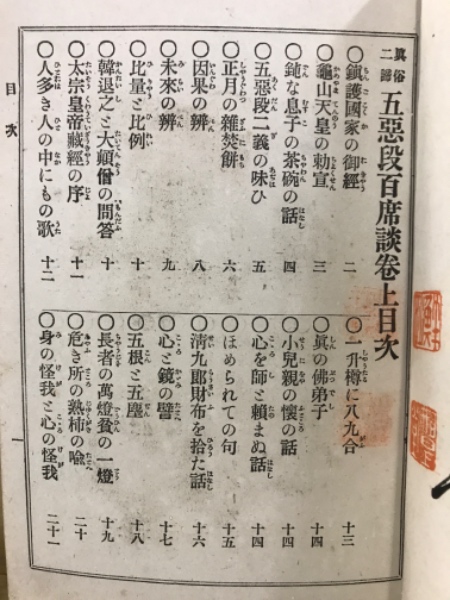 眞俗二諦 五惡段百席談卷上目次
〇鎭護國家の御經 二
〇龜山天皇の勅宣 三
〇鈍な息子の茶碗の話 四
〇五惡段二義の味ひ 五
〇正月の雜焚餅 六
〇因果の辨 八
〇未來の辨 九
〇比量と比例 十
〇韓退之と大顚僧の問答 十
〇太宗皇帝藏經の序 十一
〇人多き人の中にもの歌 十二
〇一升樽に八九合 十三
〇眞の佛弟子 十四
〇小兒親の懷の話 十四
〇心を師と賴まぬ話 十四
〇ほめられての句 十五
〇淸九郎財布を拾た話 十六
〇心と鏡の譬 十七
〇五根と五塵 十八
〇長者の萬燈貧の一燈 十九
〇危き所の熟柿の喩 二十
〇身の怪我と心の怪我 二十一
目次
一